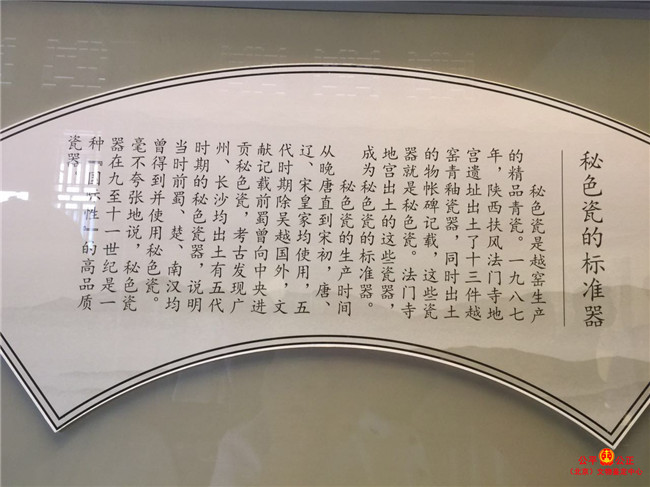 秘色瓷的标准器
秘色瓷是越窑生产
的精品青瓷。一九八七
年，陕西扶风法门寺地
宫遗址出土了十三件越
窑青釉瓷器，同时出土
的物帐碑记载，这些瓷
器就是秘色瓷。法门寺
地宫出土的这些瓷器，
成为秘色瓷的标准器。
秘色瓷的生产时间
从晚唐直到宋初，唐、
辽、宋皇家均使用，五
代时期除吴越国外，文
献记载前蜀曾向中央进
贡秘色瓷，考古发现广
州、长沙均出土有五代
时期的秘色瓷器，说明
当时前蜀、楚、南汉均
曾得到并使用秘色瓷。
毫不夸张地说，秘色瓷
器在九至十一世纪是一
种『国际性』的高品质
瓷器。
公平 公正